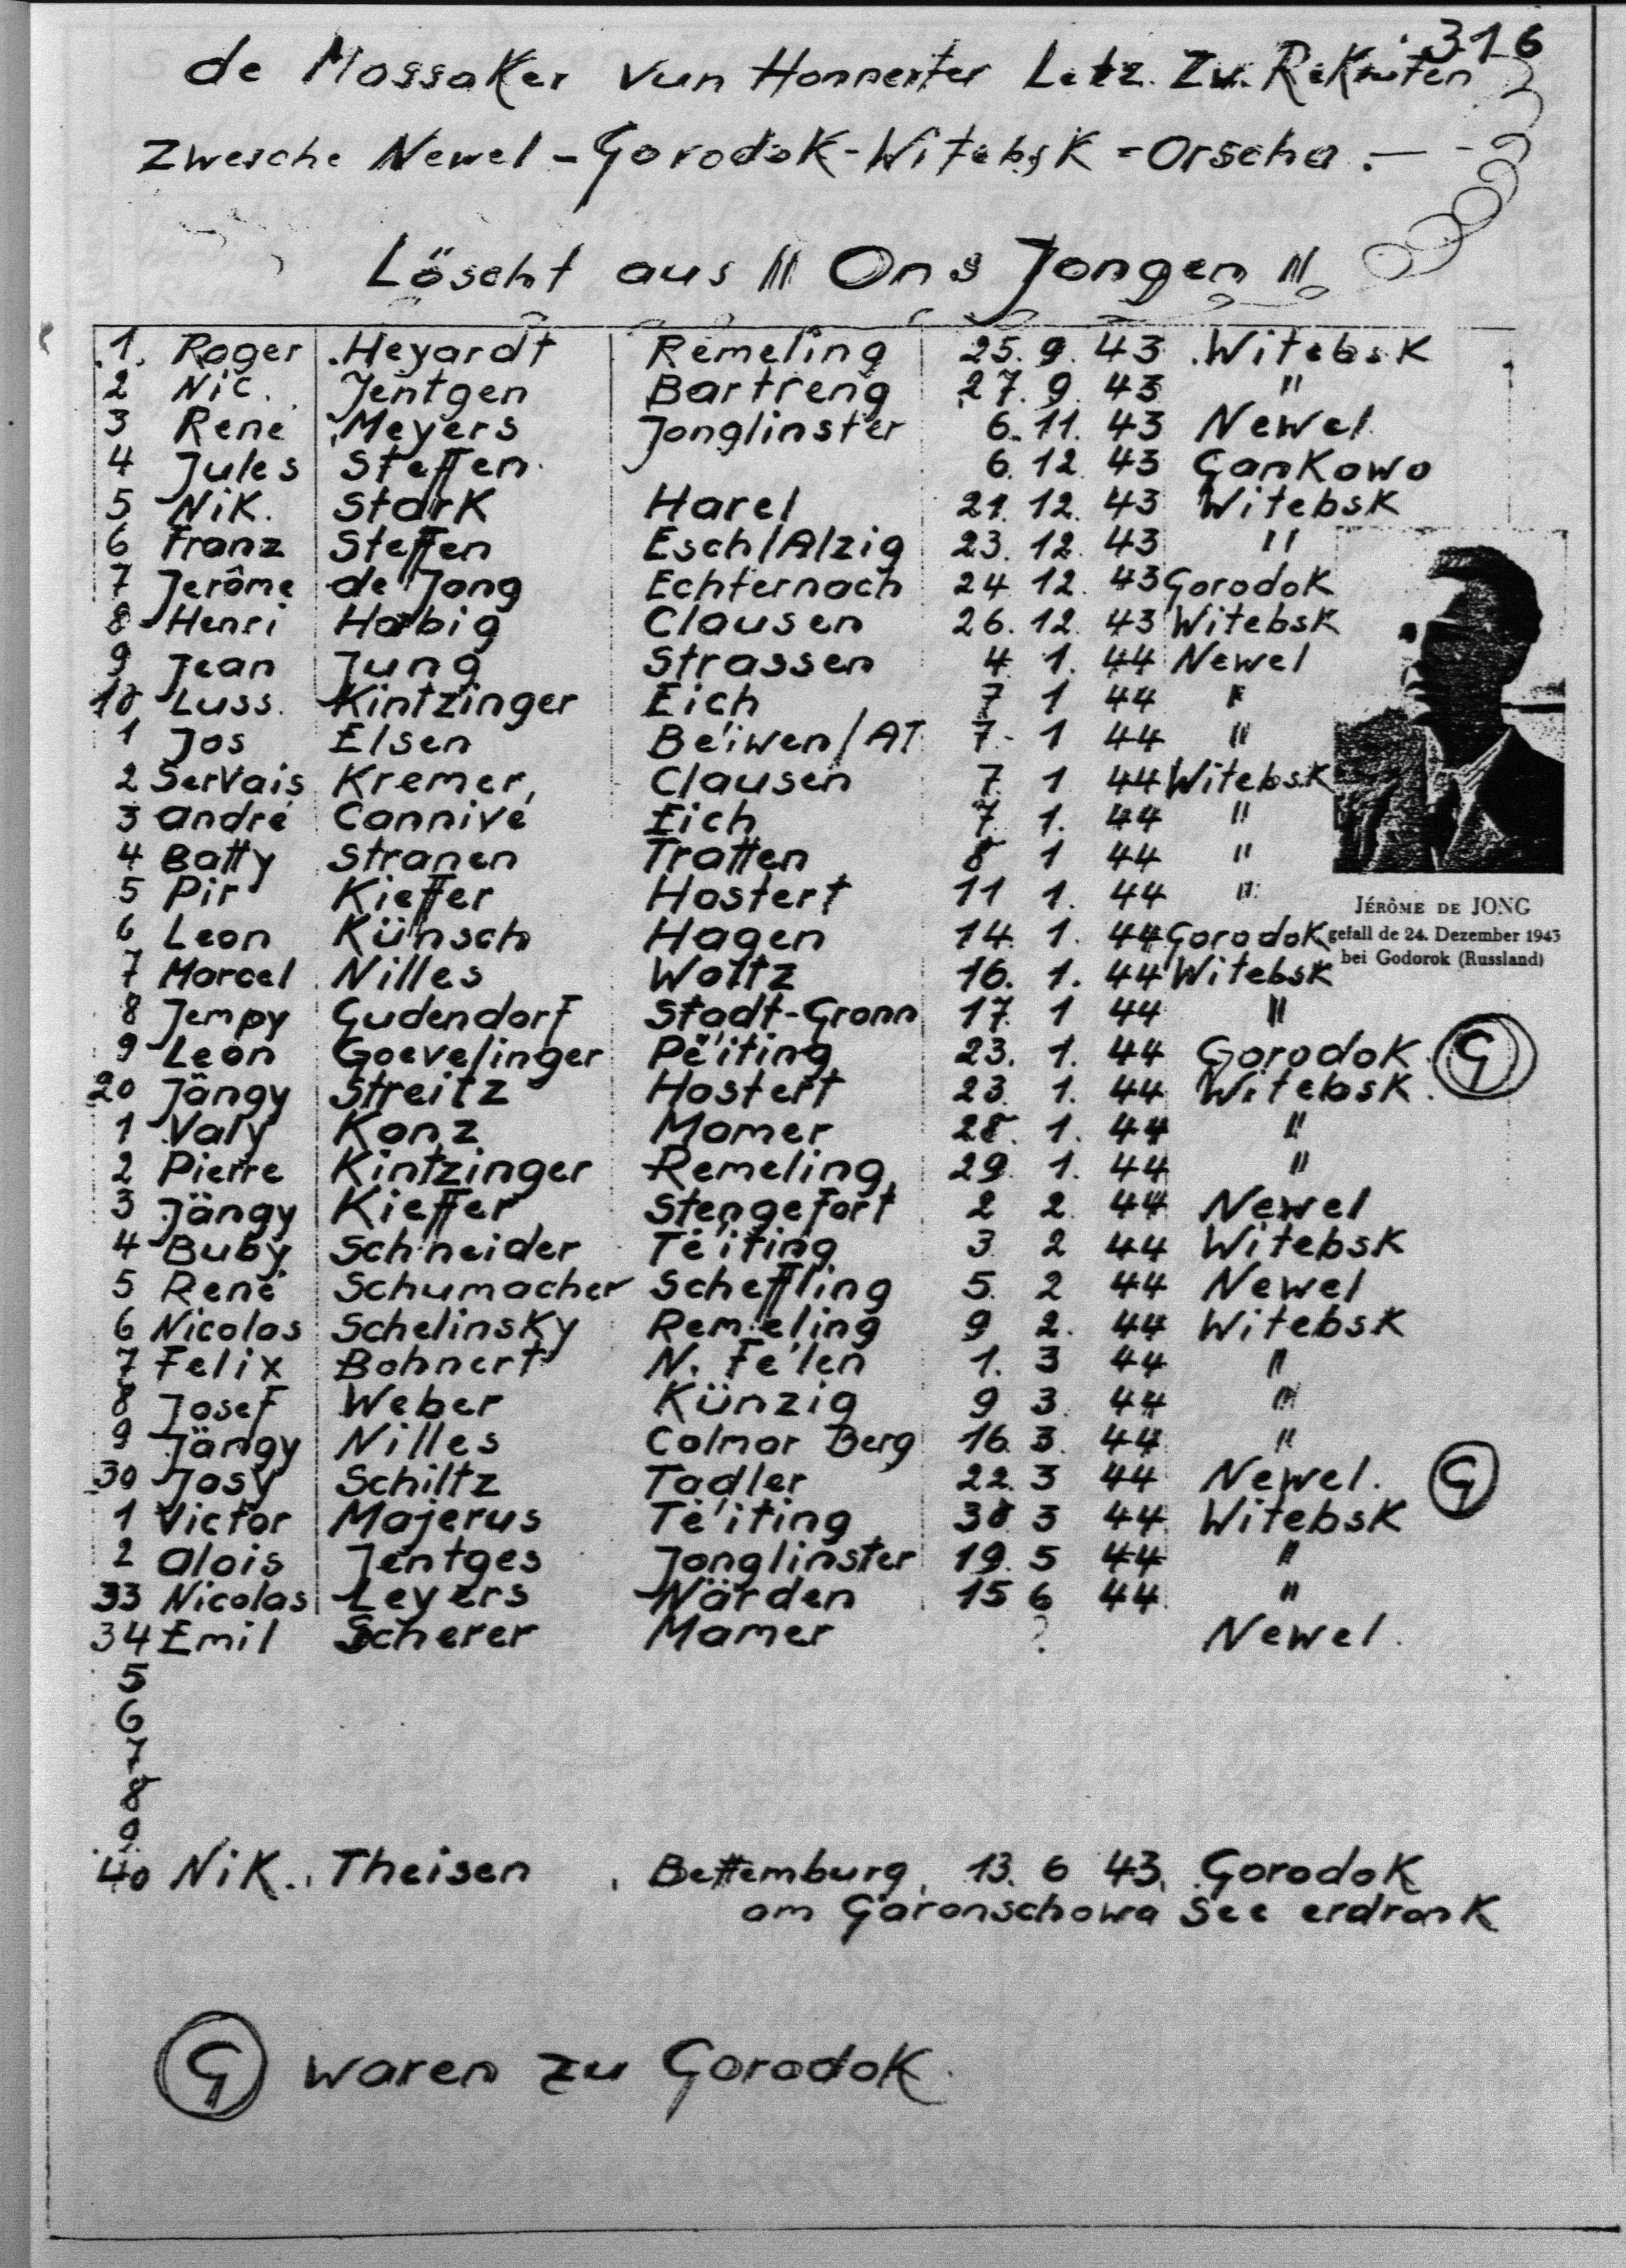 316
de Massaker vun Honnerter Letz. Zw. Rekruten
zwesche Newel - Gorodok - Witebsk = Orscha . —
Löscht aus " Ons Jongen "
1. Roger Heyardt Remeling 25. 9. 43 Witebsk
2 Nic. Jentgen Bartreng 27. 9. 43 "
3 René Meyers Jonglinster 6. 11. 43 Newel
4 Jules Steffen 6. 12. 43 Gankowo
5 Nik. Stark Harel 21. 12. 43 Witebsk
6 Franz Steffen Esch/Alzig 23. 12. 43 "
7 Jerôme de Jong Echternach 24 12. 43 Gorodok
8 Henri Habig Clausen 26. 12. 43 Witebsk
9 Jean Jung Strassen 4. 1. 44 Newel
10 Luss. Kintzinger Eich 7 1 44 "
1 Jos Elsen Béiwen/AT. 7. 1 44 "
2 Servais Kremer, Clausen 7. 1 44 Witebsk
3 André Cannivé Eich 7. 1. 44 "
4 Batty Stranen Tratten 8 1 44 "
5 Pir Kieffer Hostert 11 1. 44 "
6 Leon Künsch Hagen 14. 1. 44 Gorodok
7 Marcel Nilles Woltz 16. 1. 44 Witebsk
8 Jempy Gudendorf Stadt-Gronn 17. 1 44 "
9 Leon Goevelinger Péiting 23. 1. 44 Gorodok G
20 Jängy Streitz Hostert 23. 1. 44 Witebsk.
1 Valy Konz Momer 28. 1. 44 "
2 Pierre Kintzinger Remeling 29. 1. 44 "
3 Jängy Kieffer Stengefort 2 2. 44 Newel
4 Buby Schneider Téiting 3 2 44 Witebsk
5 René Schumacher Scheffling 5. 2 44 Newel
6 Nicolas Schelinsky Remeling 9 2. 44 Witebsk
7 Felix Bohnert N. Félen 1. 3 44 "
8 Josef Weber Künzig 9 3. 44 "
9 Jängy Nilles Colmar Berg 16. 3. 44 "
30 Josy Schiltz Tadler 22. 3 44 Newel. G
1 Victor Majerus Téiting 30 3 44 Witebsk
2 Alois Jentges Jonglinster 19. 5 44 "
33 Nicolas Leyers Närden 15 6 44 "
34 Emil Scherer Mamer ? Newel.
5
6
7
8
9
40 Nik. Theisen , Bettemburg, 13. 6 43, Gorodok
am Garonschowa See erdronk
JÉRÔME DE JONG
gefall de 24. Dezember 1943
bei Godorok (Russland)
G waren zu Gorodok.